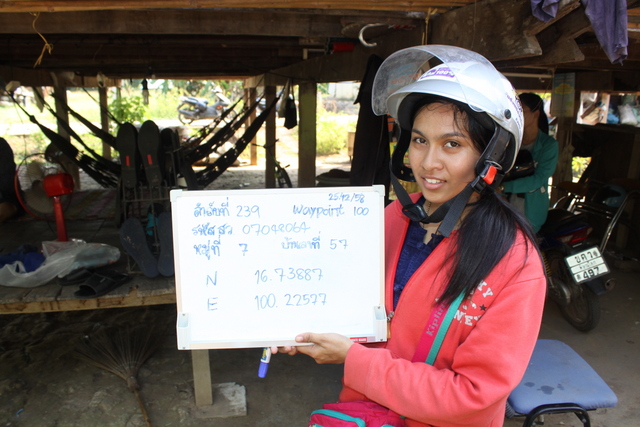 25/12/58
ลำดับที่ 239 Waypoint 100
รหัส สว 07048064
หมู่ที่ 7 บ้านเลขที่ 57
N 16.73887
E 100.22577
497